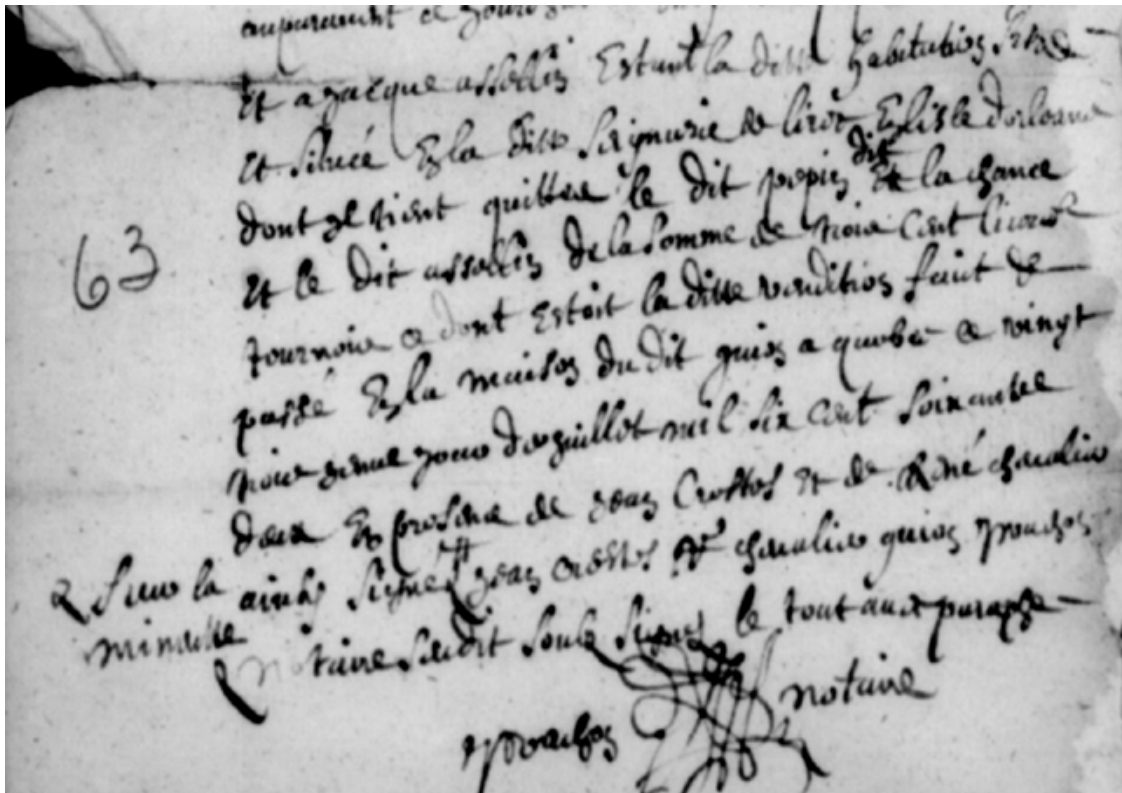 auparavant
Et a Jacque asselin Estant la ditte habitation size
Et situeé En la ditte seigneurie de liret En lisle dorleans
dont Il tient quitte le dit pepin dit Et la chance
63
Et le dit asselin de la somme de trois Cent livres
tournois dont Estoit la ditte vendition fait et
passé En la maison du dit guion a quebec ce vingt
jour de Juillet mil six Cent soixante
deux En presence de Jean Crostes Et de René chevalier
ainsi signé Jean crostes R chevalier guion
sur la
minutte
notaire susdit soub signé le tout aux paraphe
notaire